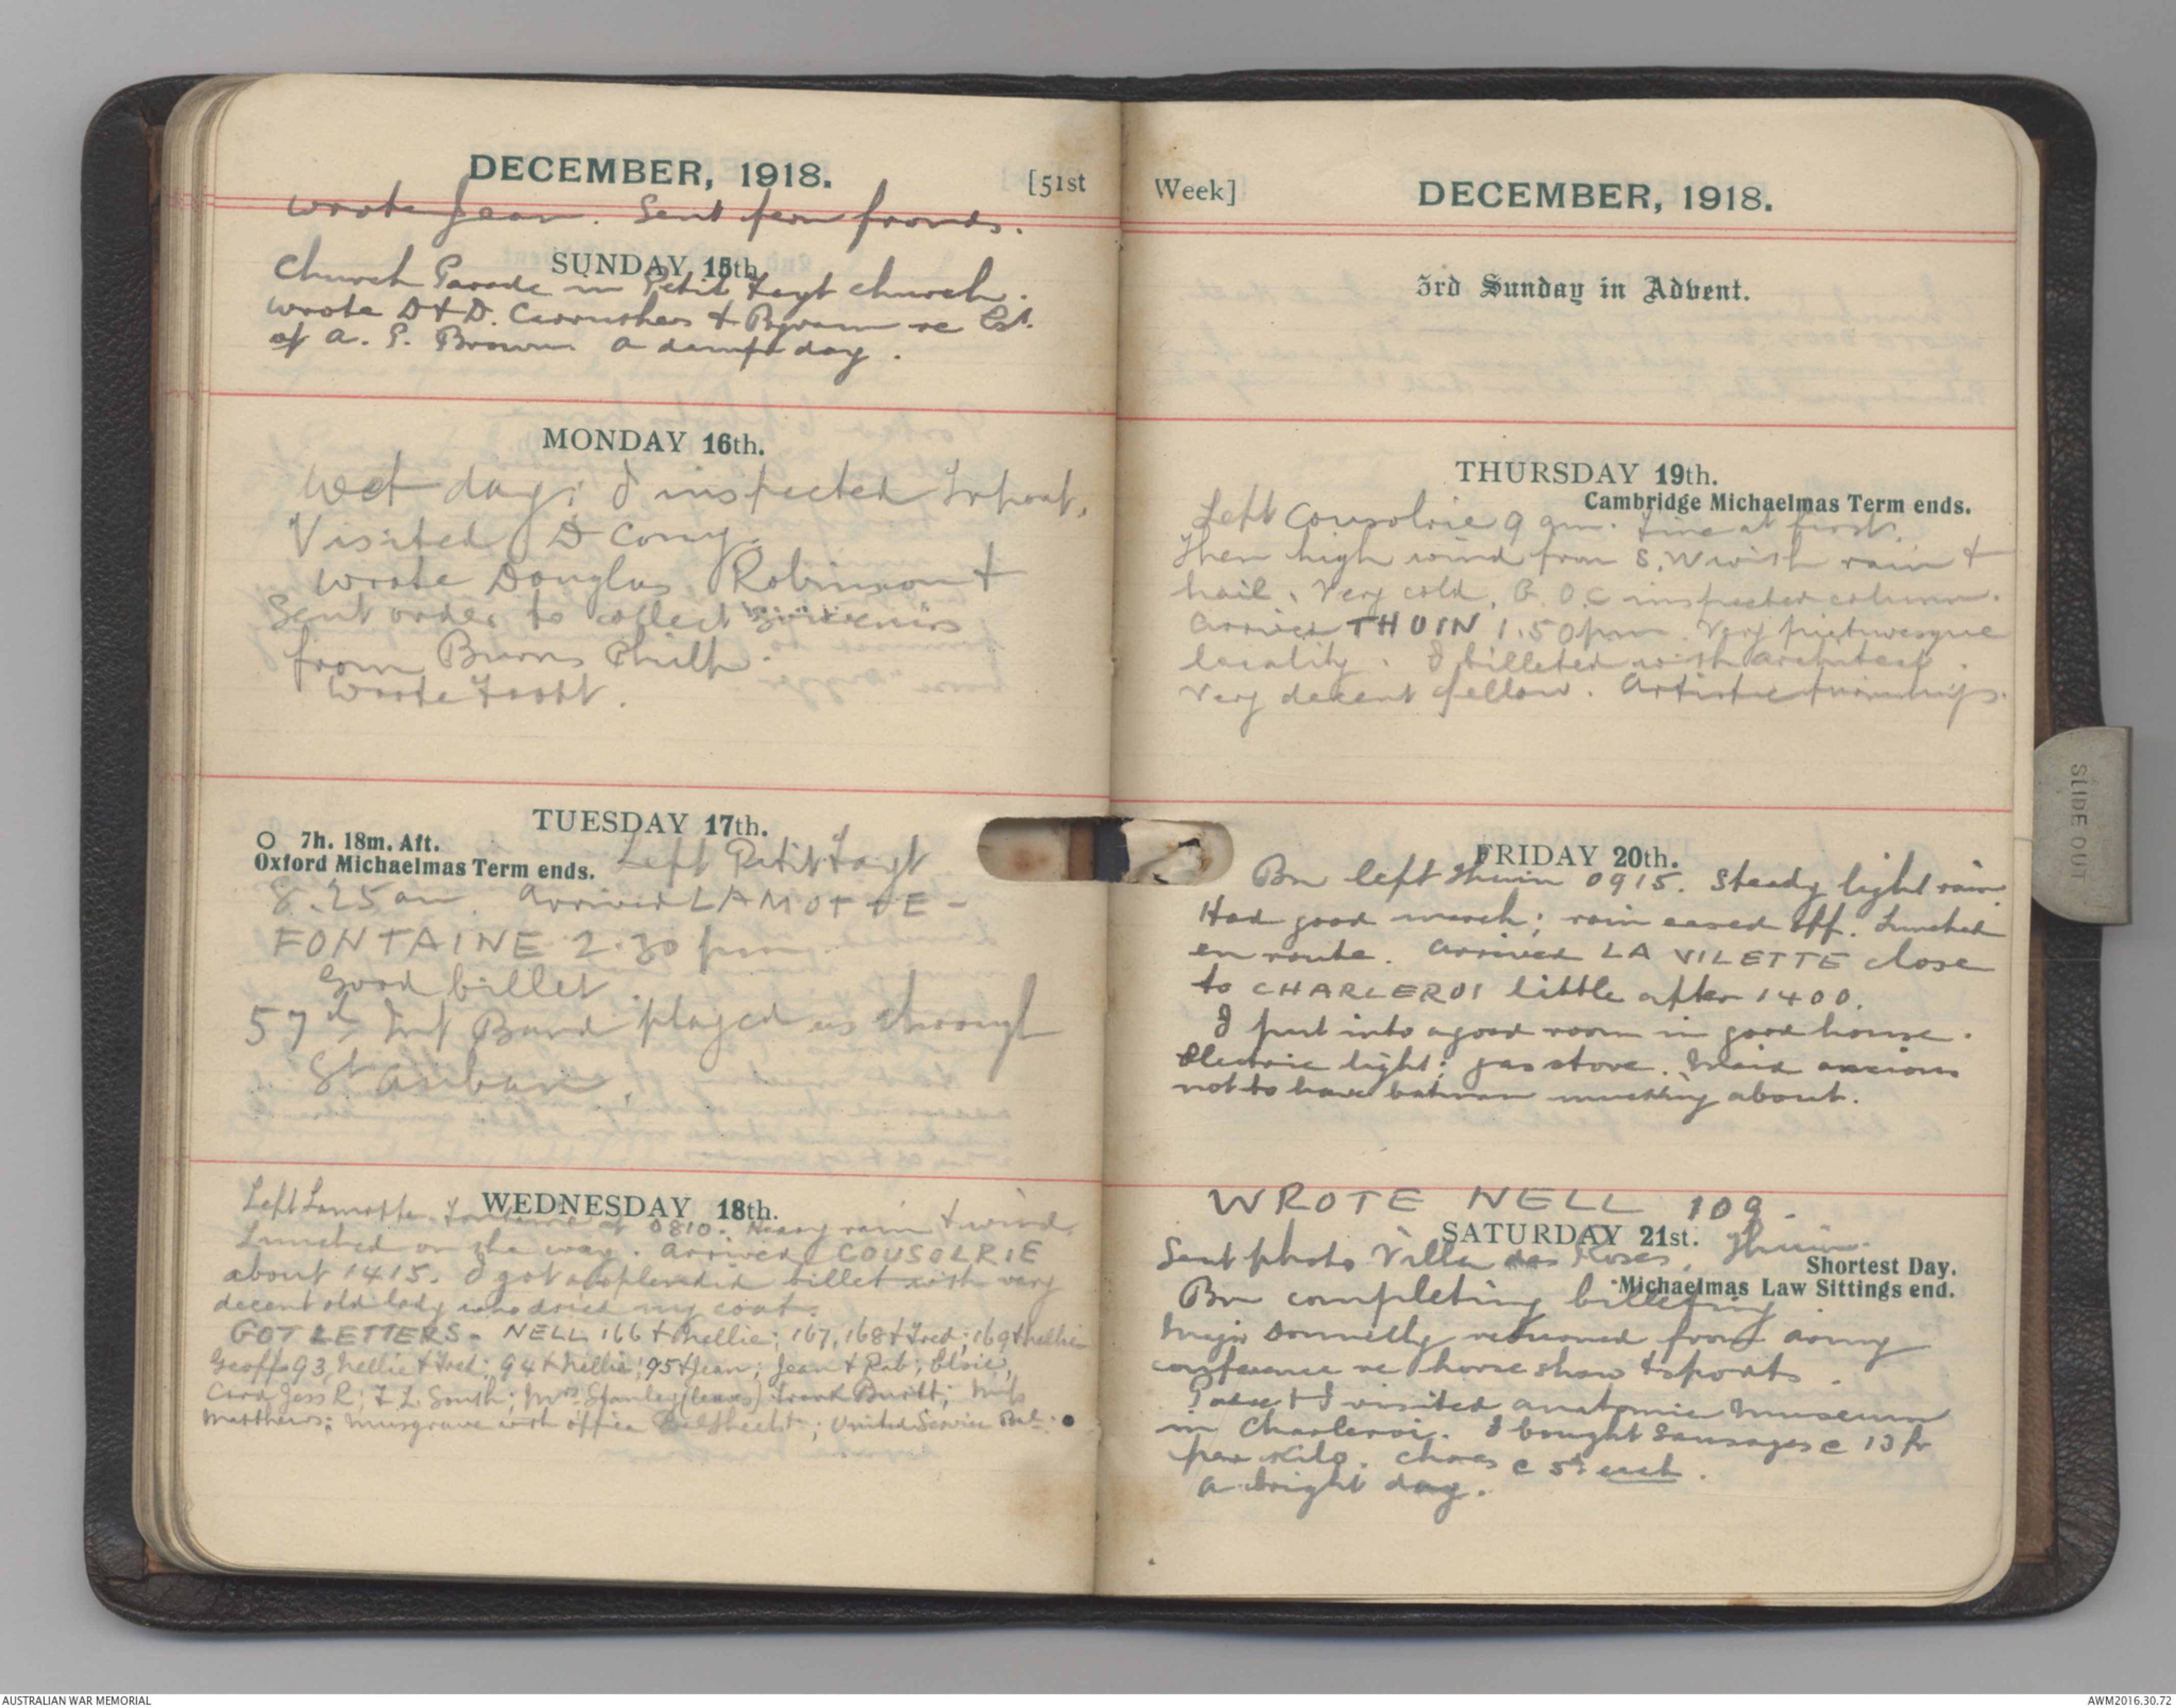 DECEMBER, 1918. [51st
Wrote Jean. Sent fern fronds.
SUNDAY 15th
Church Parade in Petit Fayt church.
Wrote D & D. Carruthers & Byram re Est.
of A. P. Brown. A damp day.
MONDAY 16th.
Wet day; I inspected Trsport.
Visited D Comy.
Wrote Douglas Robinson &
Sent order to collect souvenirs
from Burns Philp.
Wrote
TUESDAY 17th.
O 7h. 18m. Aft.
Oxford Michaelmas Term ends. Left Petit Fayt
8.25 am. Arrived LAMOTTE-
FONTAINE 2.30 pm.
Good billet.
57th Inf Band played us through
St Aubin.
WEDNESDAY 18th.
Left Lamotte Fontaine at 0810. Heavy rain & wind.
Lunched on the way. Arrived COUSOLRIE
about 1415. I got a splendid billet with very
decent old lady who dried my coat.
GOT LETTERS - NELL 166 & Nellie; 167, 168 & Fred; 169 & Nellie
Geoff 93, Nellie & Fred; 94 & Nellie; 95 & Jean; Jean & Rab; Elsie,
Card Jess R; F. L. South; Mrs Stanley (leave) Frank Burtt; Miss
Matthews; Musgrave with office Bal Sheet; United Service Bal.
Week] DECEMBER, 1918.
3rd Sunday in Advent.
THURSDAY 19th.
Cambridge Michaelmas Term ends.
Left Cousolrie 9 am. Fine at first.
Then high wind from S.W with rain &
hail. Very cold. G.O.C inspected column.
Arrived THUIN 1.50 pm. Very picturesque
locality. I billeted with architect.
Very decent fellow. Artistic trimmings.
FRIDAY 20th.
Bn left Thuin 0915. Steady light rain.
Had good march; rain eased off. Lunched
en route. Arrived LA VILETTE close
to CHARLEROI little after 1400.
I put into a good room in good house.
Electric light; gas stove. Maid anxious
not to have batman mucking about.
WROTE NELL 109.
SATURDAY 21st.
Sent photo Villa des Roses, Thuin.
Shortest Day.
Michaelmas Law Sittings end.
Bn completing billeting
Major Donnelly returned from army
conference re horse show & sports.
& I visited anatomic museum
in Charleroi. I bought Sausages @ 13 fr
per kilo. @ 5d each.
A bright day.
SLIDE OUT
AUSTRALIAN WAR MEMORIAL
AWM2016.30.72